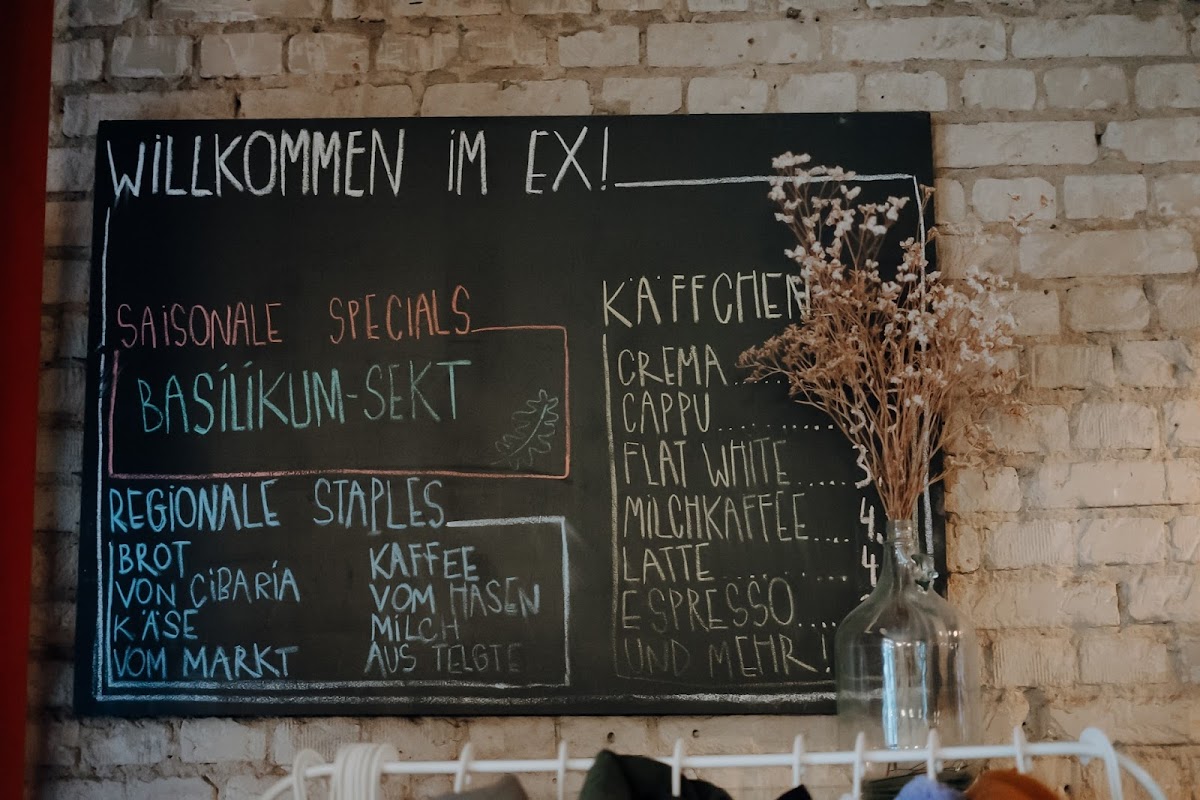 WILLKOMMEN IM EX!
SAISONALE SPECIALS
BASILIKUM-SEKT
REGIONALE STAPLES
BROT
VON CIBARIA
KÄSE
VOM MARKT
KAFFEE
VOM HASEN
MILCH
AUS TELGTE
KÄFFCHEN
CREMA......
CAPPU..........
FLAT WHITE.....3
MILCHKAFFEE....4.
LATTE..........4
ESPRESSO....
UND MEHR!